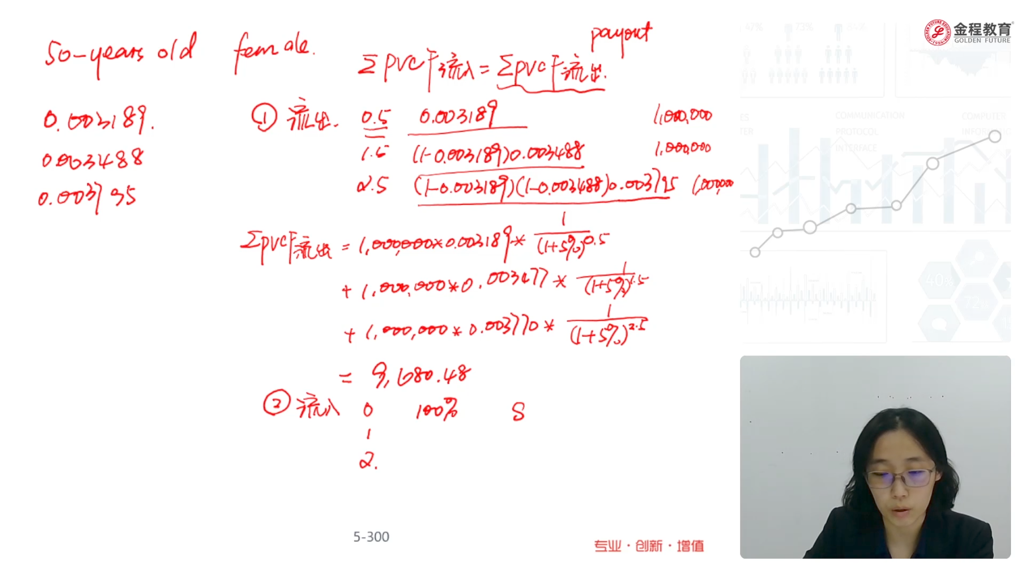 金程教育
GOLDEN FUTURE
50-years old female.
payout
ΣPVCF流入=ΣPVCF流出.
0.003189.
0.003488
0.003795
① 流出. 0.5 0.003189 1,000,000
1.5 (1-0.003189)0.003488 1,000,000
2.5 (1-0.003189)(1-0.003488)0.003795 1,000,000
ΣPVCF流出 = 1,000,000*0.003189* 1/(1+5%)^0.5
+ 1,000,000*0.003477* 1/(1+5%)^1.5
+ 1,000,000*0.003770* 1/(1+5%)^2.5
= 9,680.48
② 流入 0 100% S
1
2.
5-300
专业·创新·增值